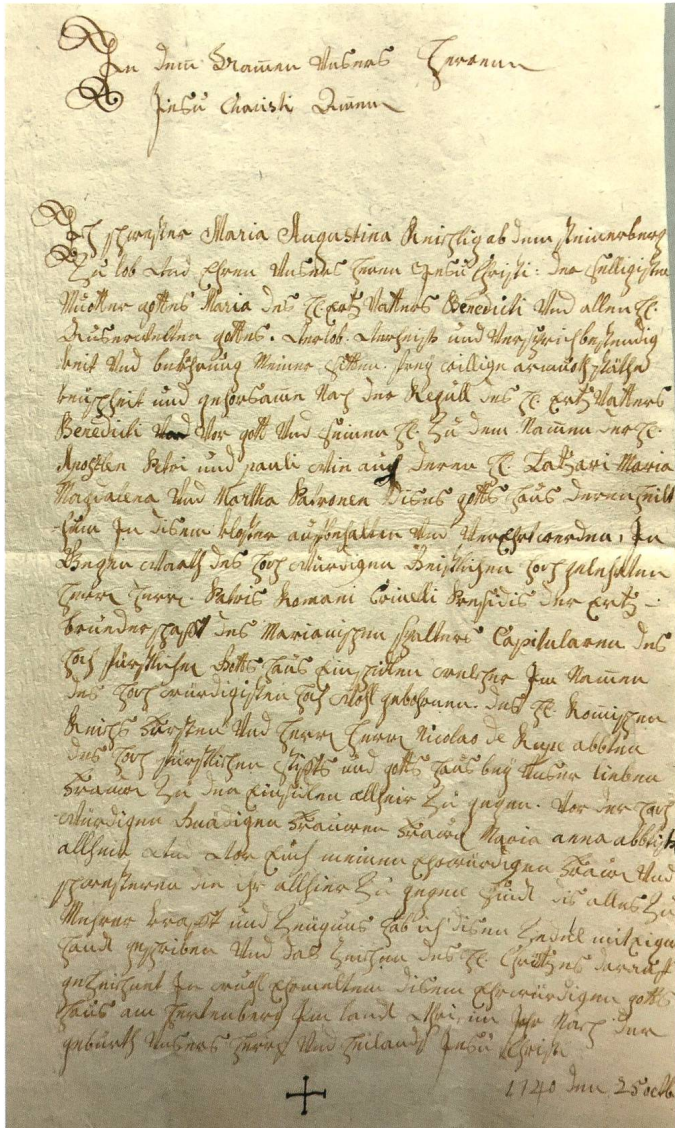 In dem Nammen Unsers Herren
Jesu Christi Amen
Ich schwester Maria Augustina Reichlig ab dem steinerberg
Zu lob Und Ehren Unsers Heren Jesu Christi: der helligisten
Muotter gottes Maria des H. Ertz Vatters Benedicti Und allen H.
Auserwelten gottes. Verlob Verheiß und Versprich bestendig
keit Und bekehrung Meiner sitten. frey willige armuoth stäthe
keuscheit und gehorsamme Nach der Regull des H. Ertz Vatters
Benedicti Vor gott Und seinen H. Zu dem Nammen der H.
Apostlen Petri und Pauli Wie auch deren H. Latzari Maria
Magdalena Und Martha Patronen dises gotts haus deren heilt
-hum In disem kloster aufbehalten Und Verehrt werden, In
gegen Warth des hoch Würdigen Geistlichen hoch gelehrten
Herr Herr. Patris Romani Præsidis der Ertz-
bruoderschafft des Marianischen psalters Capitularen des
hoch fürstlichen Gotts haus Einsidlen welcher Im Nammen
des hoch würdigisten hoch Wohl gebohrnen. des H. Römischen
Reichs Fürsten Und Herr Herr Nicolao de abbten
des hoch fürstlichen stiffts und gotts haus bey Unser lieben
Frauwen Zu den Einsidlen allheir Zu gegen. Vor der hoch
-würdigen Gnädigen Frauwen Frauw Maria anna abbtiß
allheir Und Vor Euch meinen Ehrwürdigen Frauw Und
schwesteren die ihr allhier Zu gegen sindt dis alles Zu
Mehrer krafft und Zeügnus hab ich disen Zedell mit Eigner
handt geschriben Und das Zeichen des H. Creützes darauff
gezeichnet In disem Ehrwürdigen gotts
haus am Im landt im Jahr Nach der
geburth Unsers Herr Und Heilandts Jesu Christi
1740 den 25 octb